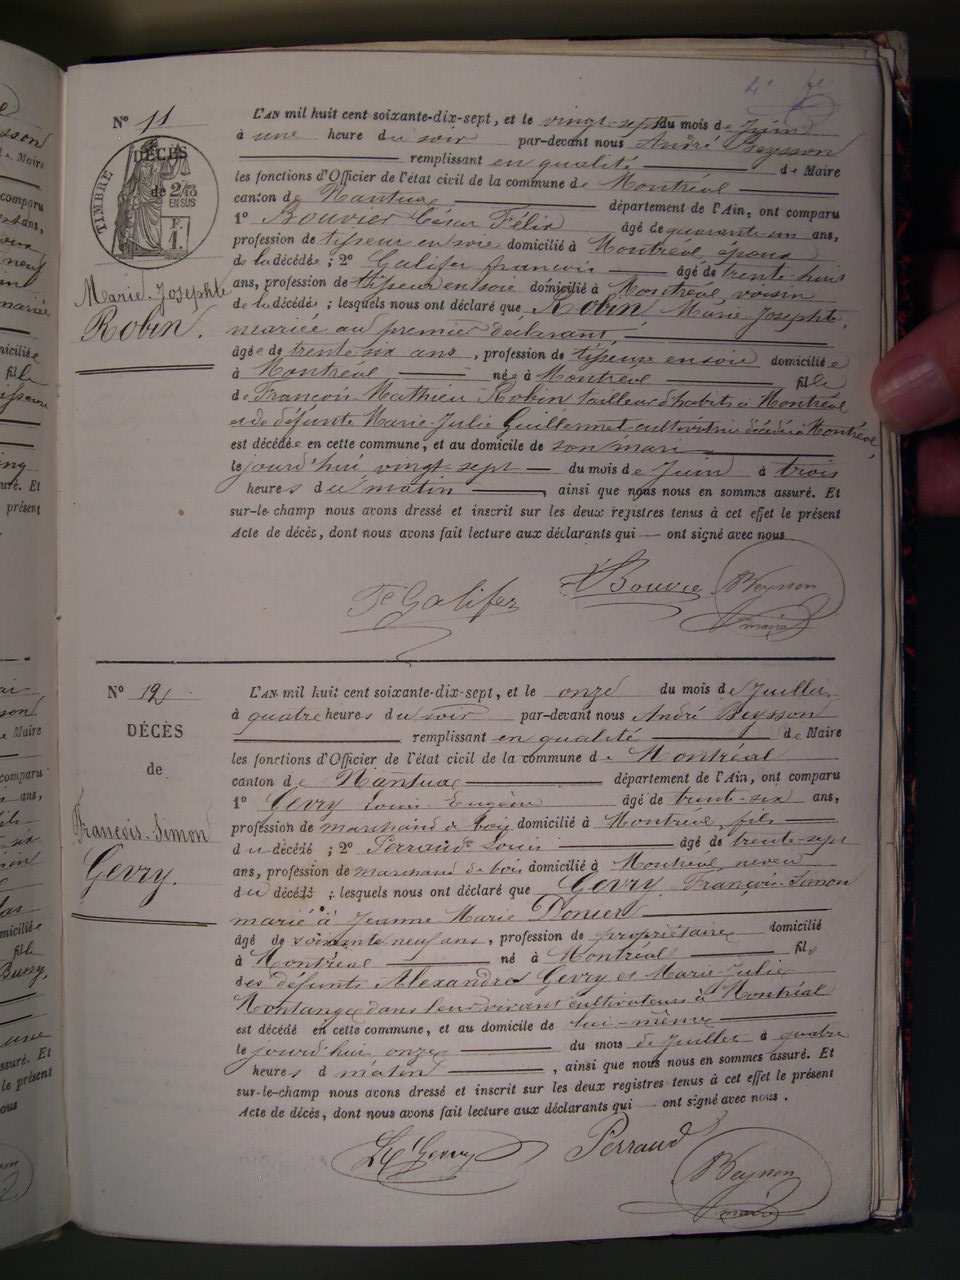 4e fe
N° 11
TIMBRE
DÉCÈS
de 2/10
EN SUS
F.
1.
Marie-Josephte
Robin.
L'AN mil huit cent soixante-dix-sept, et le vingt-sept du mois de Juin
à une heure du soir par-devant nous André Beysson
remplissant en qualité de Maire
les fonctions d'Officier de l'état civil de la commune de Montréal
canton de Nantua département de l'Ain, ont comparu
1° Bouvier César Félix âgé de quarante un ans,
profession de tisseur en soie domicilié à Montréal époux
de la décédée ; 2° Galifer françois âgé de trente-huit
ans, profession de tisseur en soie domicilié à Montréal, voisin
de la décédée ; lesquels nous ont déclaré que Robin Marie Josephte,
mariée au premier déclarant
âgée de trente six ans, profession de tisseuse en soie domiciliée
à Montréal née à Montréal fille
de François-Mathieu Robin tailleur d'habits à Montréal
et de défunte Marie-Julie Guillermet cultivatrice décédée à Montréal,
est décédée en cette commune, et au domicile de son mari
le jourd'hui vingt-sept du mois de Juin à trois
heures du matin, ainsi que nous nous en sommes assuré. Et
sur-le-champ nous avons dressé et inscrit sur les deux registres tenus à cet effet le présent
Acte de décès, dont nous avons fait lecture aux déclarants qui — ont signé avec nous
Fs Galifer Bouvier Beysson
maire
N° 12
DÉCÈS
de
François-Simon
Gevry.
L'AN mil huit cent soixante-dix-sept, et le onze du mois de Juillet
à quatre heures du soir par-devant nous André Beysson
remplissant en qualité de Maire
les fonctions d'Officier de l'état civil de la commune de Montréal
canton de Nantua département de l'Ain, ont comparu
1° Gevry Louis Eugène âgé de trente-six ans,
profession de marchand de bois domicilié à Montréal, fils
du décédé ; 2° Perraud Louis âgé de trente-sept
ans, profession de marchand de bois domicilié à Montréal neveu
du décédé ; lesquels nous ont déclaré que Gevry François-Simon
marié à Jeanne Marie Donier
âgé de soixante neuf ans, profession de propriétaire domicilié
à Montréal né à Montréal fils
des défunts Alexandre Gevry et Marie-Julie
Montange dans leur vivant cultivateurs à Montréal
est décédé en cette commune, et au domicile de lui-même
le jourd'hui onze du mois de Juillet à quatre
heures d matin, ainsi que nous nous en sommes assuré. Et
sur-le-champ nous avons dressé et inscrit sur les deux registres tenus à cet effet le présent
Acte de décès, dont nous avons fait lecture aux déclarants qui — ont signé avec nous.
Gevry Perraud Beysson
maire